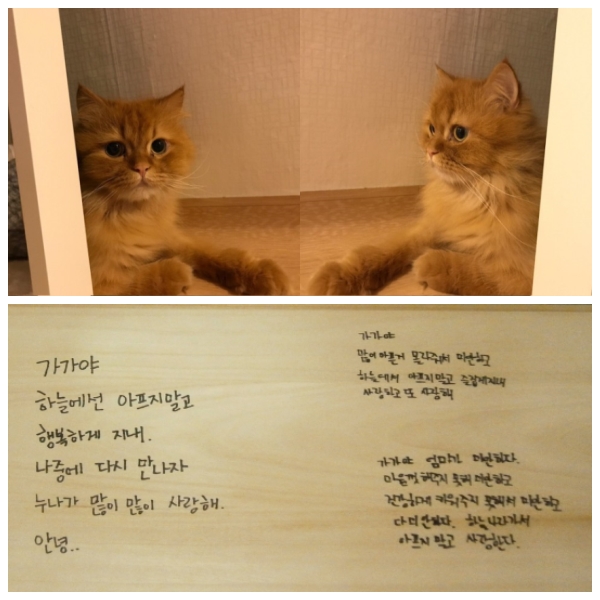 가가야
하늘에선 아프지말고
행복하게 지내.
나중에 다시 만나자
누나가 많이 많이 사랑해.
안녕..
가가야
많이 아픈거 몰라줘서 미안하고
하늘에서 아프지말고 즐겁게지내
사랑하고 또 사랑해
가가야 엄마가 미안하다.
마음껏 해주지 못해 미안하고
건강하게 키워주지 못해서 미안하고
다 미안하다. 하늘나라가서
아프지 말고 사랑한다.